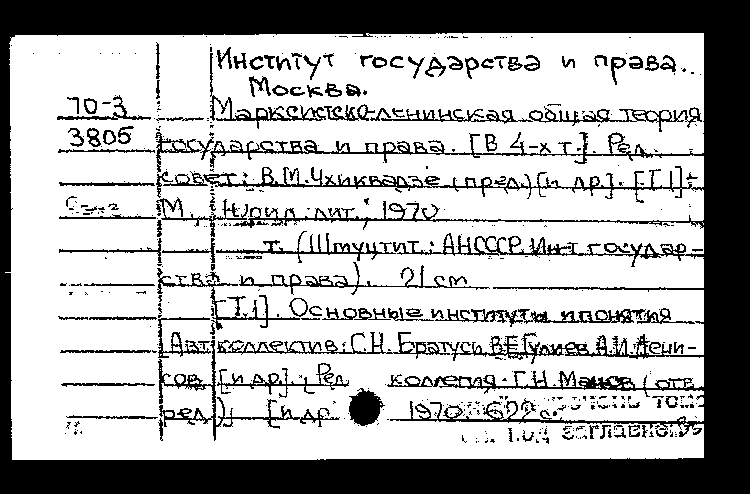 Институт государства и права.
Москва.
70-3 Марксистско-ленинская общая теория
3805 государства и права. [В 4-х т.]. Ред.
совет: В.М. Чхиквадзе (пред.) [и др.]. [Т.1]-
М., Юрид. лит., 1970
т. (Штуцтит.: АН СССР. Ин-т государ-
ства и права). 21 cm
[Т.1]. Основные институты и понятия
[Авт. коллектив: С.Н. Братусь, В.Е. Гулиев, А.И. Дени-
сов [и др.]. Ред. коллегия: Г.Н. Манов (отв.
ред.), [и др. 1970. 699 с.
тома
заглавие